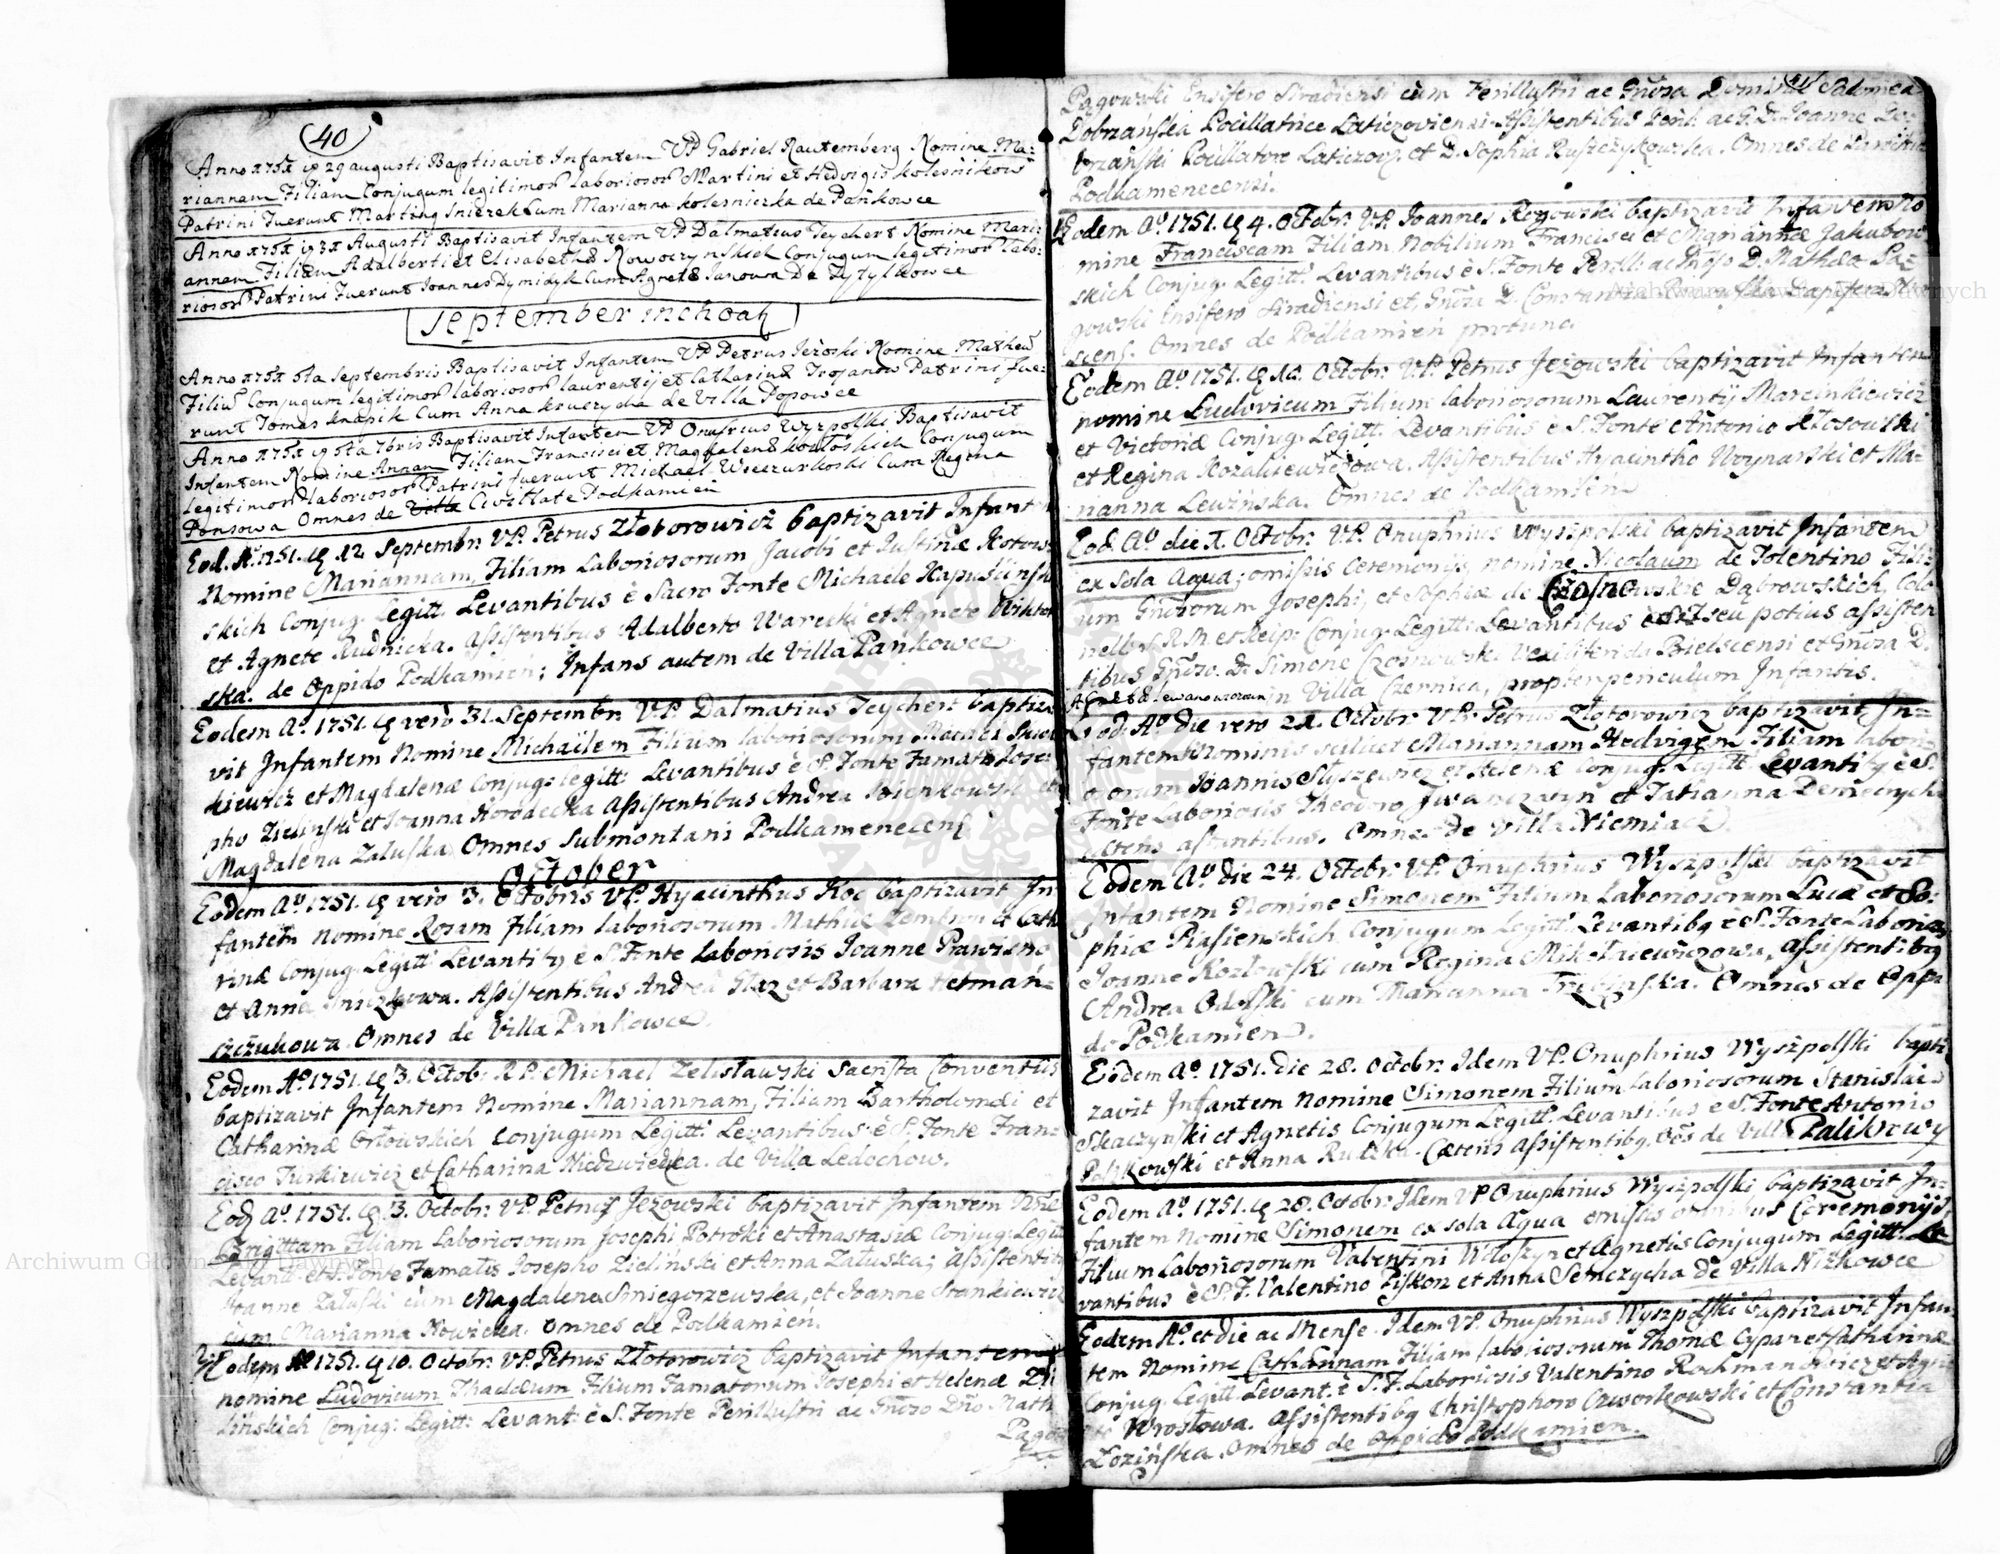 40
Anno 1751 29 augusti Baptisavit Infantem VP Gabriel Rautemberg Nomine Ma:
riannam Filiam Conjugum legitimor laboriosor Martini et Hedvigis kolesnikow
Patrini Fuerunt Marting Sniezek Cum Marianna kolesniczka de Pańkowce
Augusti Baptisavit Infantem VP Dalmatius Teychert Nomine Mari:
annam Filiam Adalberti et Elisabetha Nowoczynskich Conjugum legitimor labo:
riosor Patrini Fuerunt Joannes Dymidyk Cum Agneta Sarowa De Zytylkowce
September inchoat
Septembris Baptisavit Infantem VP Petrus Jeżoski Nomine Matheu
Filiu Conjugum legitimor laboriosor laurentij et Catharina Trojanow Patrini Fue:
runt Tomas knapik Cum Anna krucrycha de Villa Popowce
7bris Baptisavit Infantem VP Onufrius Wyzpolki Baptisavit
Infantem Nomine Annam Filiam Francisci et Magdalena kozłoskich Conjugum
legitimor laboriosor Patrini fuerunt Michael Wieczurkoski Cum Regina
Ponsowa Omnes de Villa Civitate Podkamień
Eod. Aº 1751. 12 Septembr: VP. Petrus Złotorowicz baptizavit Infant
Nomine Mariannam, Filiam Laboriosorum Jacobi et Justinæ Kotow:
skich Conjug: Legitt: Levantibus è Sacro Fonte Michaele Kapuścinsk
et Agnete Rudnicka. Assistentibus Adalberto Warecki et Agnete Wikto
ska. de Oppido Podkamień; Infans autem de Villa Pańkowce
Eodem Aº 1751. vero 31. Septembr: VP. Dalmatius Teychert baptiza
vit Infantem Nomine Michaëlem Filium laboriosorum
kiewicz et Magdalenæ Conjug: legitt: Levantibus è S. Fonte Famatis Jose:
pho Zielinski et Joanna Kowadecka Assistentibus Andrea Bienkowski et
Magdalena Załuska Omnes Submontani Podkamenecens
October
Eodem Aº 1751. vero 3. Octobris VP. Hyacinthus Koc baptizavit In
fantem nomine Rosam filiam laboriosorum Mathiæ Zembron et Cath
rinæ Conjug: Legitt: Levantibq è S. Fonte Laboriosis Joanne Prawisno
et Anna Sniezkowa. Assistentibus Andrea Glaz et Barbara Hetmań-
szczukowa Omnes de Villa Pańkowce.
Eodem Aº 1751. 3. Octob: R.P. Michael Zelisławski Sacrista Conventus
baptizavit Infantem Nomine Mariannam, Filiam Bartholomæi et
Catharinæ Orłowskich Conjugum Legitt: Levantibus è S. Fonte Fran:
cisco Turkiewicz et Catharina Niedzwiedzka. de Villa Ledochow.
Eod Aº 1751. 3. Octobr: VP. Petrus Jeżowski baptizavit Infantem Nõie
Brigittam Filiam Laboriosorum Josephi Potocki et Anastasiæ Conjug: Legitt
Levant: è S. Fonte Famatis Josepho Zieliński et Anna Załuska; Assistentib
Joanne Załuski cum Magdalena Sniegorzewska, et Joanne Stankiewicz
cum Marianna Nowicka. Omnes de Podkamień.
Eodem Aº 1751. 10. Octobr: VP. Petrus Złotorowicz baptizavit Infantem
nomine Ludovicum Thaddæum Filium Famatorum Josephi et Helenæ Zi
lińskich Conjug: Legitt: Levant: è S. Fonte Perillustri ac Gñoso Dño Math
Pago
41
Pągowski Ensifero Siradiensi cum Perillustri ac Gñosa Domina Salomea
Dobrzańska Pocillatrice Laticzoviensi. Assistentibus Perill: ac G. D. Joanne Do:
brzański Pocillatore Laticzov: et D. Sophia Ruszczykowska. Omnes de Parochia
Podkamenecensi.
Eodem Aº 1751. 4. Octobr: VP. Joannes Rogowski baptizavit Infantem No
mine Franciscam Filiam Nobilium Francisci et Mariannæ Jakubow
skich Conjug: Legitt: Levantibus è S. Fonte Perill: ac Gnoso D. Mathæo Pą-
gowski Ensifero Siradiensi et Gñosa D. Constantia
Omnes de Podkamień
Eodem Aº 1751. Octobr: VP. Petrus Jeżowski baptizavit Infantem
nomine Ludovicum Filium laboriosorum Laurentij Marcinkiewicz
et Victoriæ Conjug: Legitt: Levantibus è S. Fonte Antonio Kłosowski
et Regina Kozakiewiczowa. Assistentibus Hyacintho Woynarski et Ma-
rianna Lewińska. Omnes de Podkamień
Eod. Aº die Octobr: VP. Onuphrius Wyszpolski baptizavit Infantem
ex sola Aqua; omissis Ceremonijs, nomine Nicolaum de Tolentino Fili:
um Gñosorum Josephi, et Sophiæ de Czosnowskie Dąbrowskich, Colo
nellor R. M et Reip: Conjug: Legitt: Levantibus seu potius assisten
tibus Gñoso. D. Simone Czosnowski Vexillifendo Bielscensi et Gñosa D.
in Villa Czernica, propter periculum Infantis.
Eod: Aº die vero 21. Octobr: VP. Petrus Złotorowicz baptizavit In-
fantem Nominis scilicet Mariannam Hedvigem Filiam labori
osorum Joannis et Helenæ Conjug: Legitt: Levantibq è S.
Fonte Laboriosis Theodoro Iwanczyszyn et Tatianna
cæteris astantibus. Omnes de Villa Niemiacz.
Eodem Aº die 24. Octobr: VP. Onuphrius Wyszpolski baptizavit
Infantem Nomine Simonem Filium Laboriosorum Lucæ et So:
phiæ Piasienskich Conjugum Legitt: Levantibq è S. Fonte Laborios
Joanne Kozłowski cum Regina Mikołaiewiczowa, Assistentibq
Andrea Odolski cum Marianna Trębinska. Omnes de Oppi
do Podkamień.
Eodem Aº 1751. Die 28. Octobr: Idem VP. Onuphrius Wyszpolski bapti
zavit Infantem nomine Simonem Filium laboriosorum Stanislai
Skaczynski et Agnetis Conjugum Legitt: Levantibus è S. Fonte Antonio
Palikowski et Anna Rutska. Cæteris Assistentibq. Oẽs de Villa Palikrowy
Eodem Aº 1751. 28. Octobr: Idem VP Onuphrius Wyszpolski baptizavit In-
fantem Nomine Simonem ex sola Aqua omissis omnibus Ceremonijs,
Filium Laboriosorum Valentini Włoszyn et Agnetis Conjugum Legitt: Le
vantibus è S. F. Valentino Ziskorz et Anna Semczycha de Villa Niżkowce
Eodem Aº et die ac Mense. Idem VP. Onuphrius Wyszpolski baptizavit Infan
tem Nomine Catharinam Filiam laboriosorum Thomæ Cypar et Catharinæ
Conjug: Legitt: Levant: è S. F. Laboriosis Valentino Rochmankiewicz et Agne
te Wrosłowa. Assistentibq Christophoro Czworkowski et Constantia
Łozińska. Omnes de Oppido Podkamien.
Archiwum Główne Akt Dawnych
Archiwum Główne Akt Dawnych